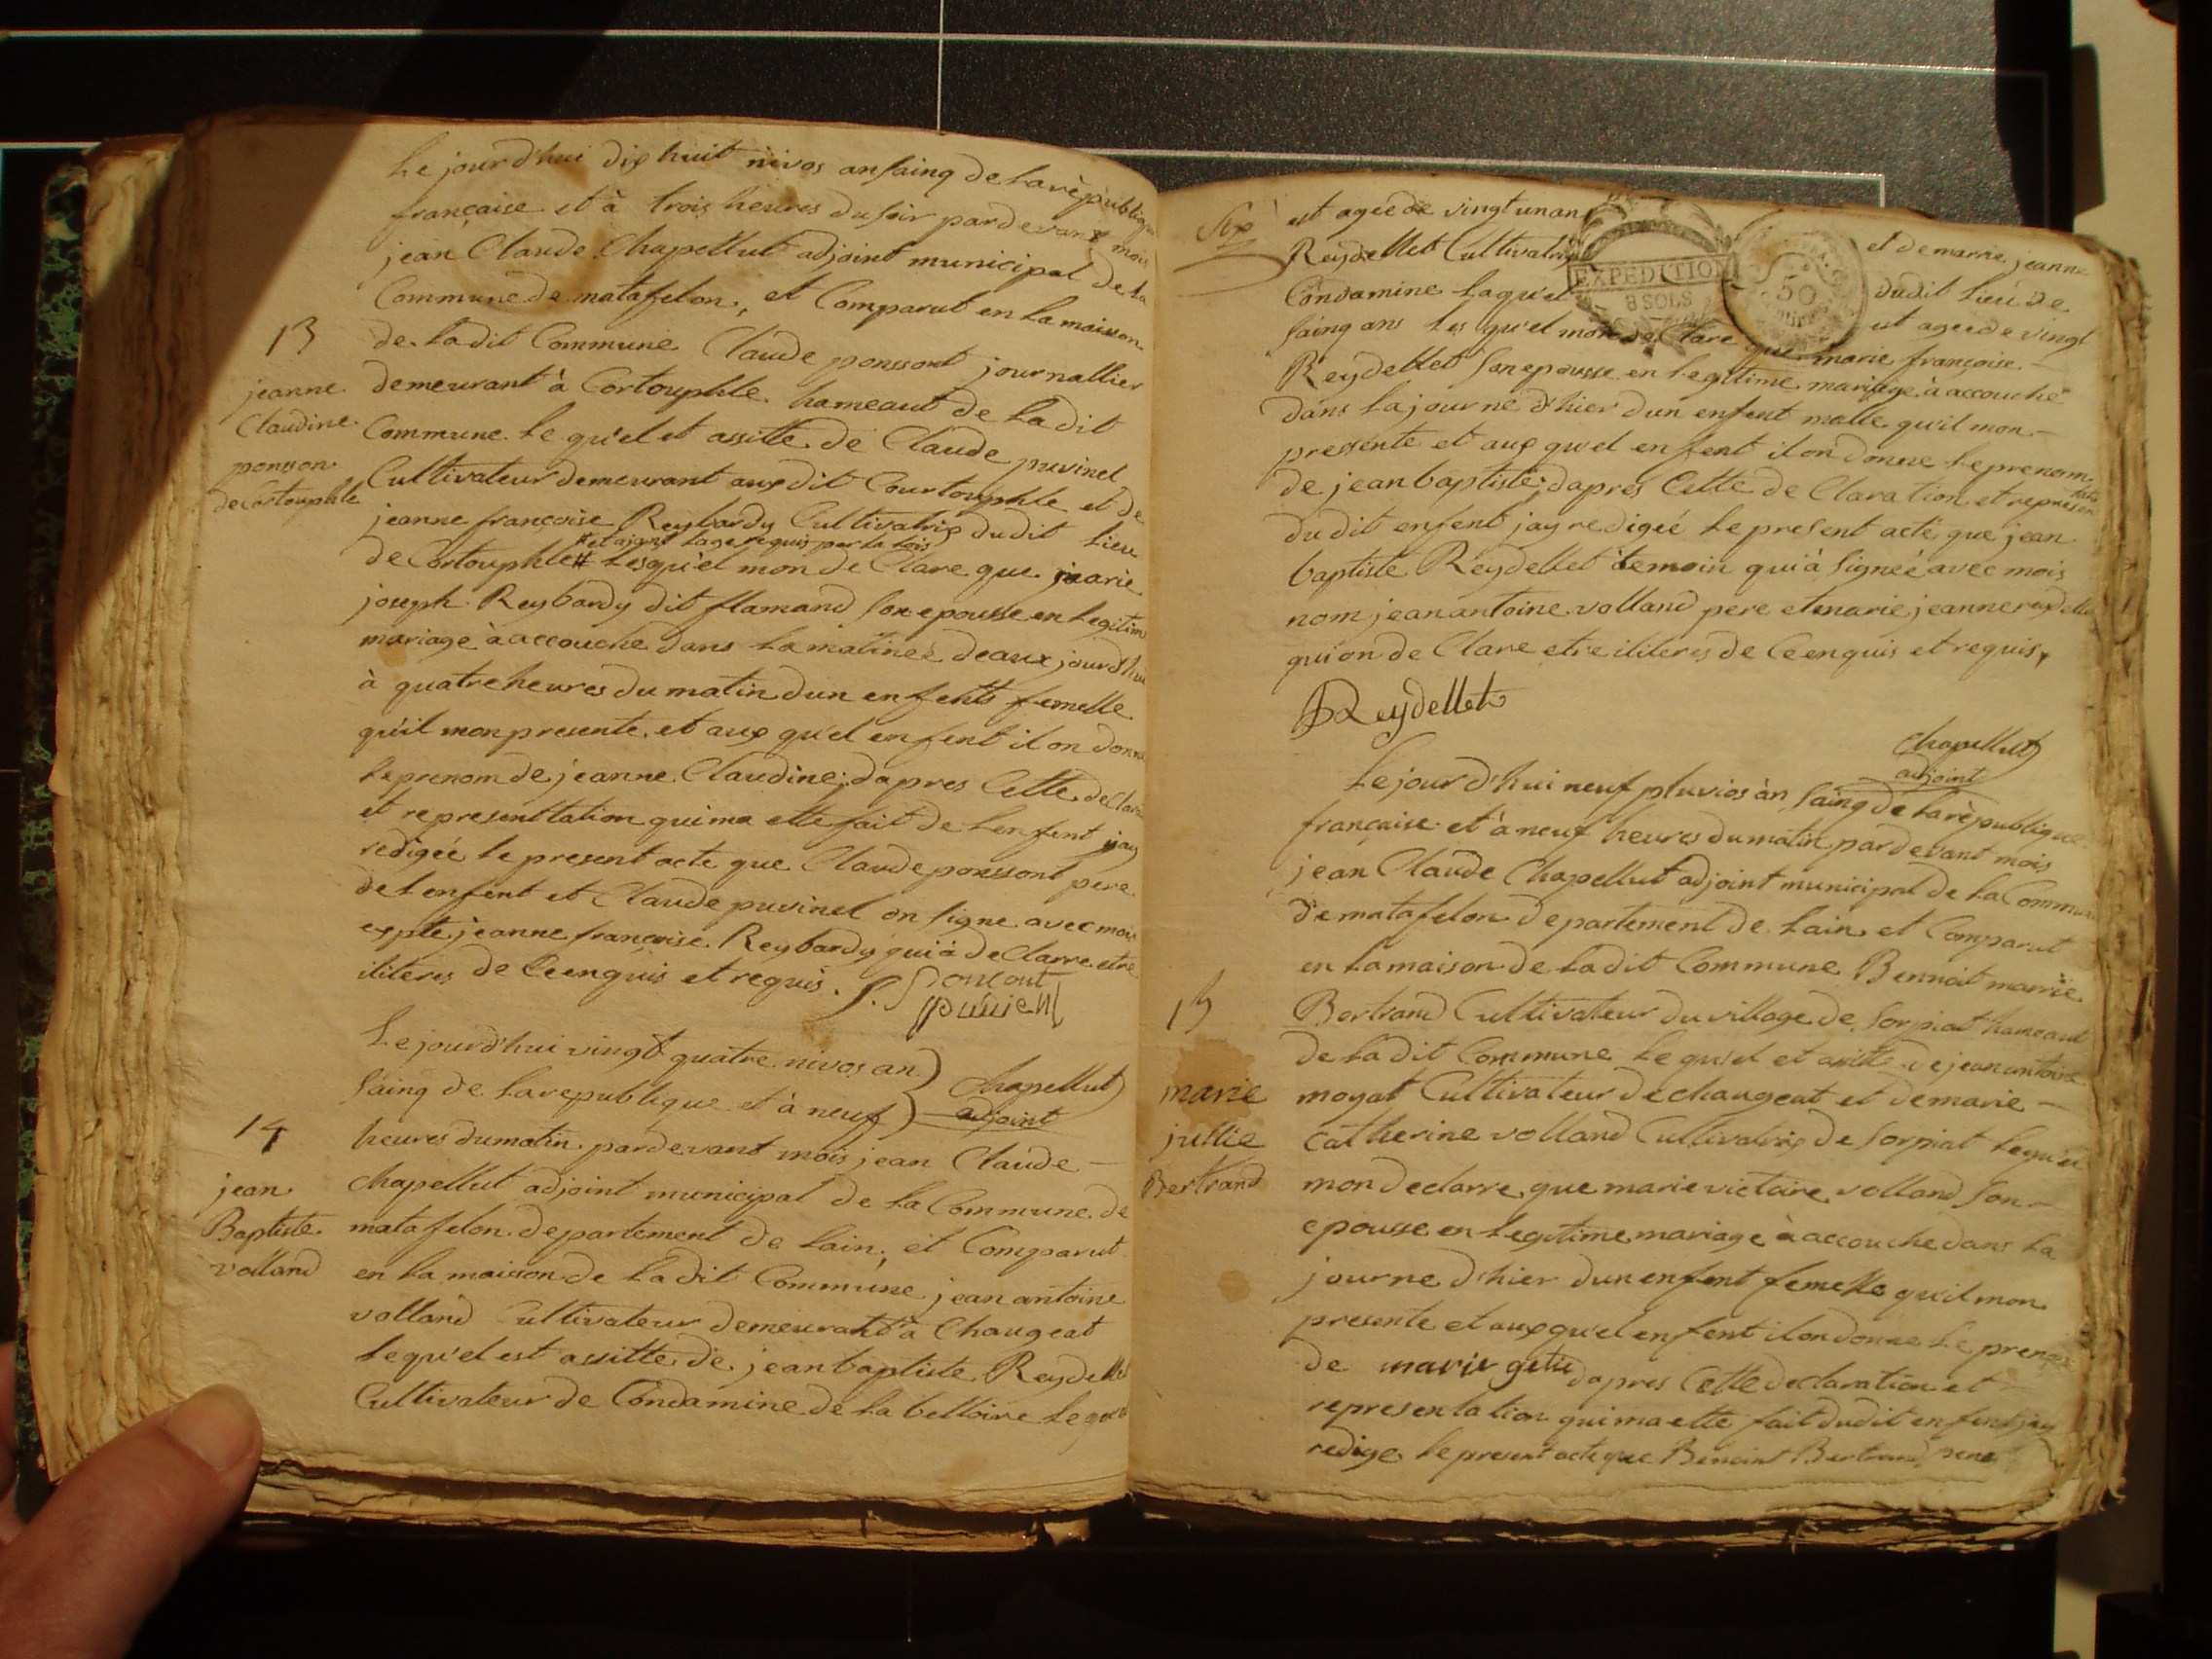 Le jourd'hui dix huit nivos an saing de la rèpublique
française et à trois heures du soir pardevant mois
jean Claude Chapellut adjoint municipal de la
Commune de matafelon, et Comparut en la maison
de ladit Commune Claude ponssont journallier
demeurant à Cortouphle hameaut de ladit
Commune le qu'el et assitte de Claude puvinel
Cultivateur demeurant auxdit Courtouphle et de
jeanne françoise Reybardy Cultivatrix dudit lieu
# et ajant lage requis par la lois
de Cortouphle # lesqu'el mon de Clare que marie
joseph Reybardy dit flamand son epousse en legitim
mariage à accouche dans la matineè deaux jourd'hui
à quatre heures du matin dun enfents femelle
qu'il mon presente et aux qu'el enfent il on donne
le prenom de jeanne Claudine; dapres Cette declara
et represenltation qui ma ette fait de lenfent jay
redigeè le present acte que Claude ponssont pere
de lenfent et Claude puvinel on signe avec mois
expte jeanne françoise Reybardy qui à de Clarre etre
iliteres de Ceenquis et requis.
13
jeanne
Claudine
ponson
de Cortouphle
Le jourd'hui vingt quatre nivos an
saing de la republique et à neuf
Chapellut
adjoint
heures du matin pardevant mois jean Claude
chapellut adjoint municipal de la Commune de
matafelon departement de lain, et Comparut
en la maison de ladit Commune jean antoine
volland Cultivateur demeurant à Chaugeat
le qu'el est assitte de jean baptiste Reydellet
Cultivateur de Condamine de la belloire le quel
14
jean
Baptiste
volland
Six
est ageè de vingt un an
et de marie jeanne
Reydellet Cultivatrix
dudit lieu de
Condamine laqu'el
est ageè de vingt
EXPEDITION
8 SOLS
50
saing ans les qu'el mon de Clare que marie françoise
Reydellet son epousse en legitime mariage à accouche
dans la journe d'hier dun enfent malle qu'il mon
presente et aux qu'el enfent il on donne le prenom
de jean baptiste; dapres Cette de Clara tion et represen
tation
dudit enfent jay redigeè le present acte que jean
baptiste Reydellet temoin qui à signeè avec mois
nom jean antoine volland pere et marie jeanne reydelle
qui on de Clare etre iliteres de Ceenquis et requis,
Reydellet
Chapellut
adjoint
Le jour d'hui neuf pluvios àn saing de la rèpublique
française et à neuf heures du matin pardevant mois
jean Claude Chapellut adjoint municipal de la Commune
de matafelon departement de lain et Comparut
en la maison de ladit Commune Bennoit marie
Bertrand Cultivateur du village de Sorpiat hameaut
de ladit Commune le qu'el et assitte de jean antoine
moyat Cultivateur de chaugeat et de marie
Catherine volland Cultivatrix de Sorpiat lequ'el
mon declarre que marie victoire volland son
epousse en legitime mariage à accouche dans la
journe d'hier dun enfent femelle qu'il mon
presente et aux qu'el enfent il on donne le prenom
de marie dapres Cette declaration et
representation qui ma ette fait dudit enfent jay
redige le present acte que Benoint Bertrand pere
15
marie
jullie
Bertrand